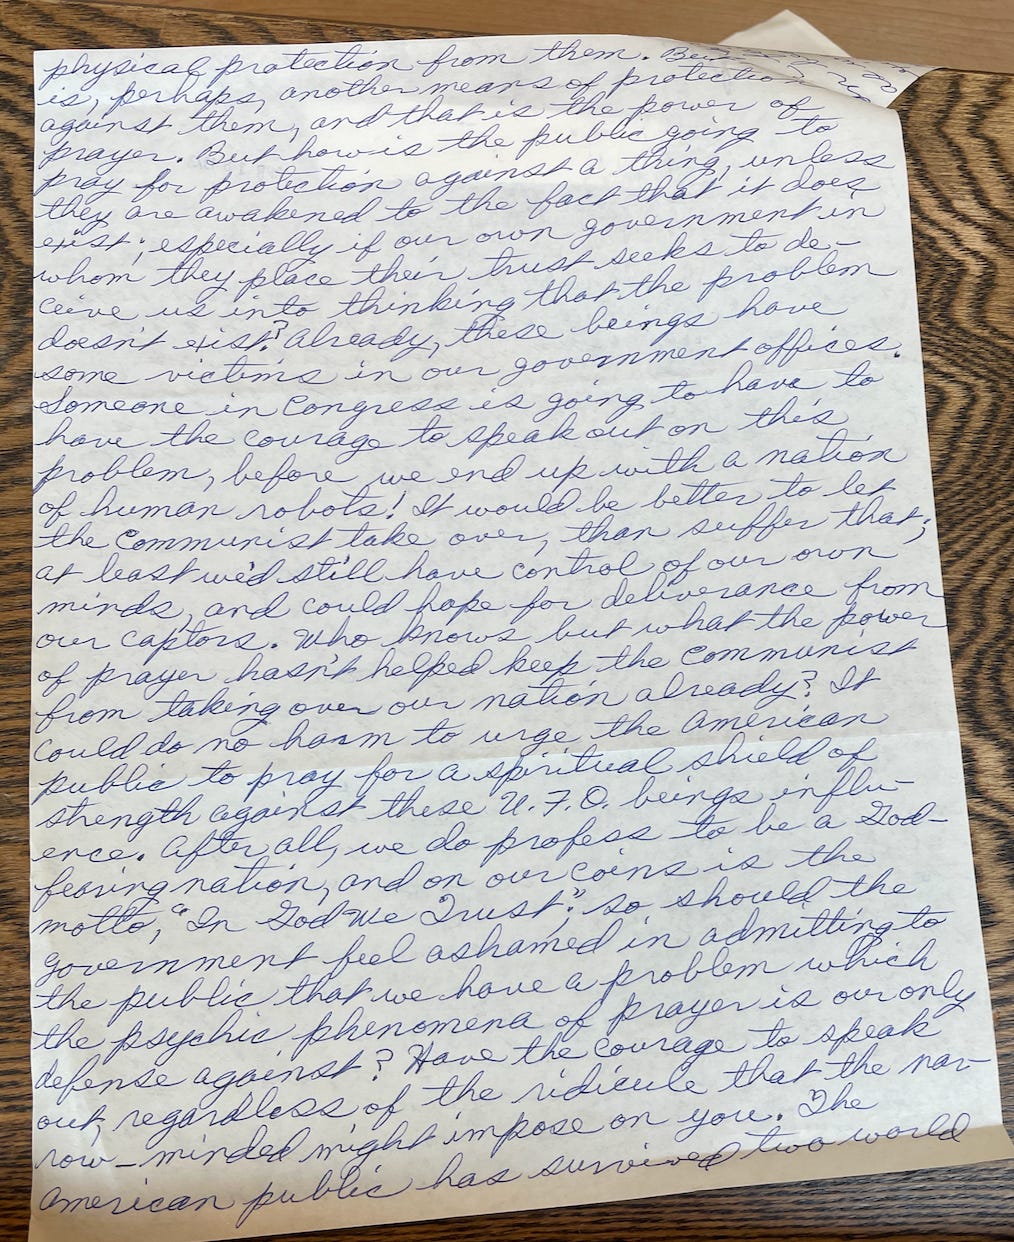 physical protection from them.
is, perhaps, another means of protection
against them, and that is the power of
prayer. But how is the public going to
pray for protection against a thing, unless
they are awakened to the fact that it does
exist; especially if our own government in
whom they place their trust seeks to de-
ceive us into thinking that the problem
doesn't exist? Already, these beings have
some victims in our government offices.
Someone in Congress is going to have to
have the courage to speak out on this
problem, before we end up with a nation
of human robots! It would be better to let
the Communist take over, than suffer that;
at least we'd still have control of our own
minds, and could hope for deliverance from
our captors. Who knows but what the power
of prayer hasn't helped keep the Communist
from taking over our nation already? It
could do no harm to urge the American
public to pray for a spiritual shield of
strength against these U.F.O. beings influ-
ence. After all, we do profess to be a God-
fearing nation, and on our coins is the
motto, "In God We Trust." so should the
government feel ashamed in admitting to
the public that we have a problem which
the psychic phenomena of prayer is our only
defense against? Have the courage to speak
out, regardless of the ridicule that the nar-
row-minded might impose on you. The
American public has survived two world